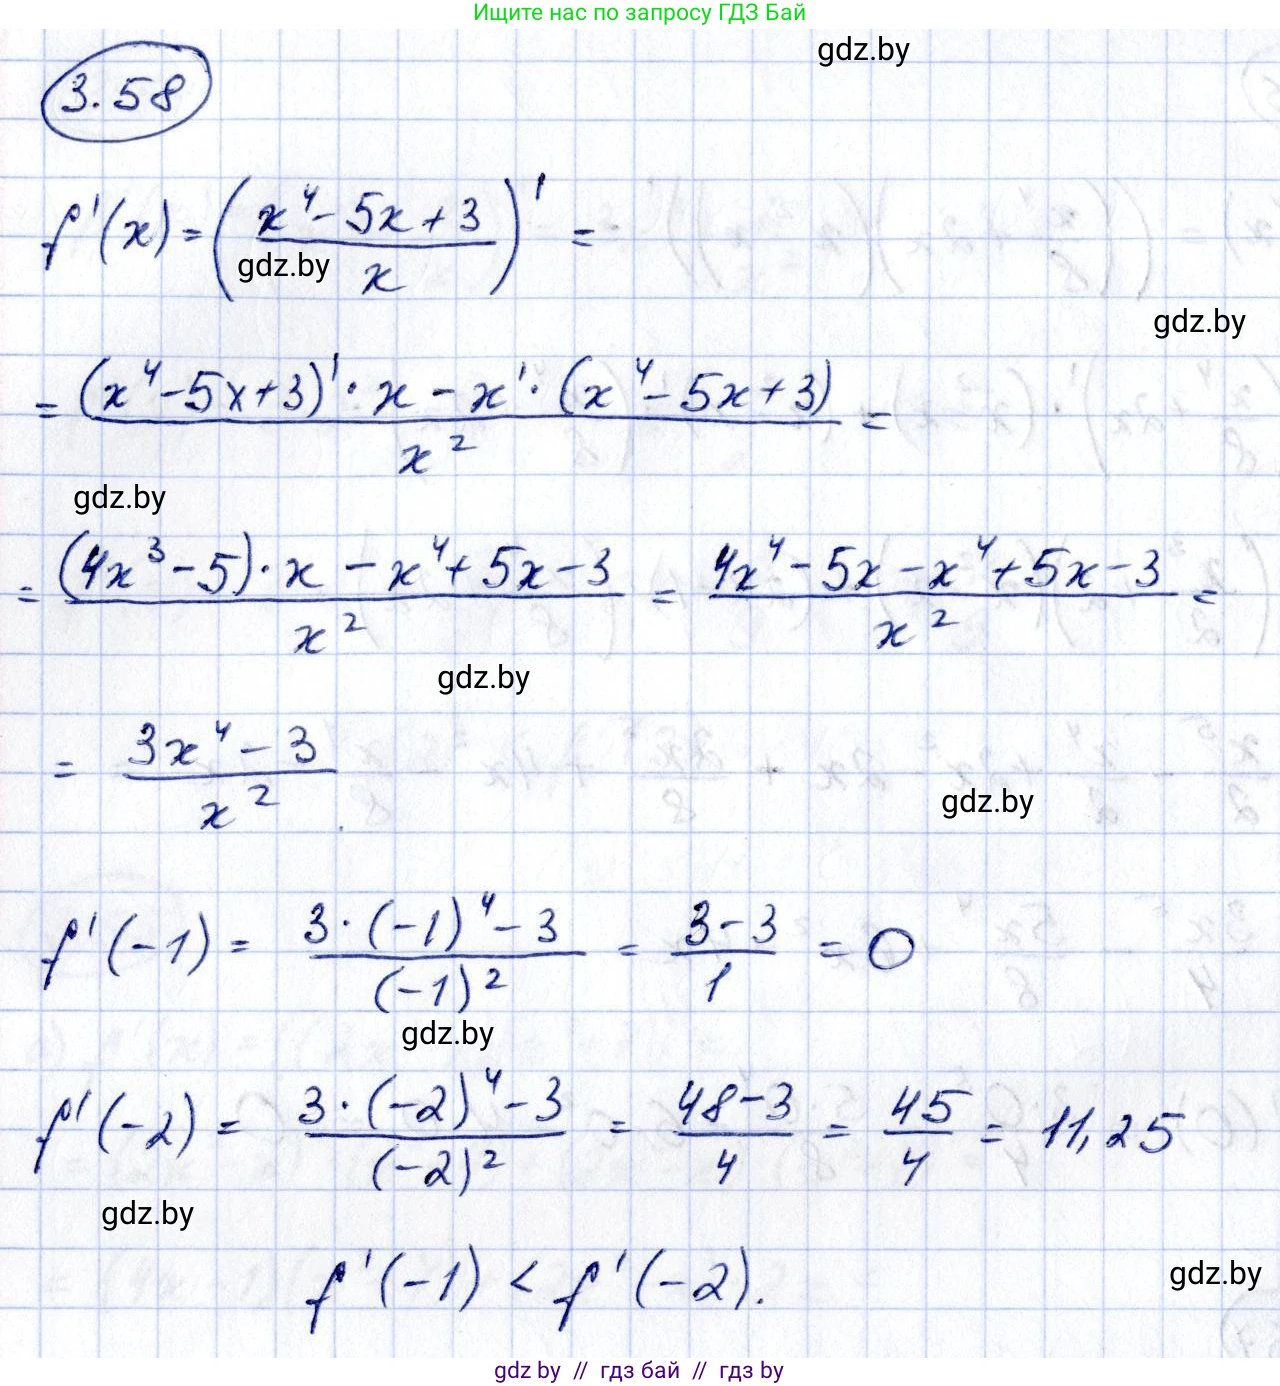 Ищите нас по запросу ГДЗ Бай
gdz.by
3.58
f'(x) = ((x⁴ - 5x + 3)/x)' =
gdz.by
gdz.by
= ((x⁴ - 5x + 3)' · x - x' · (x⁴ - 5x + 3))/x² =
gdz.by
= ((4x³ - 5) · x - x⁴ + 5x - 3)/x² = (4x⁴ - 5x - x⁴ + 5x - 3)/x² =
gdz.by
= (3x⁴ - 3)/x².
gdz.by
f'(-1) = (3 · (-1)⁴ - 3)/(-1)² = (3 - 3)/1 = 0
gdz.by
f'(-2) = (3 · (-2)⁴ - 3)/(-2)² = (48 - 3)/4 = 45/4 = 11,25
gdz.by
f'(-1) < f'(-2).
gdz.by
gdz by // гдз бай // гдз by